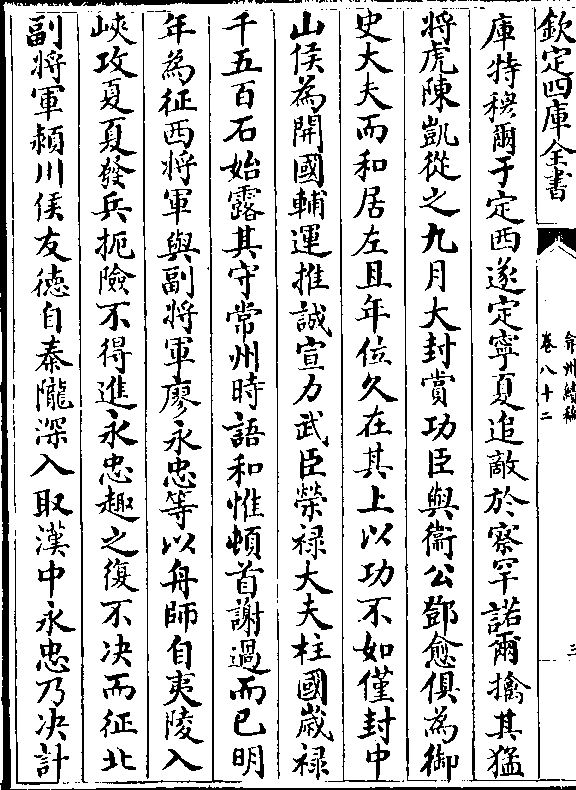 欽定四庫全書
弇州續稿
卷八十二
三
庫特穆爾于定西遂定寧夏追敵於察罕諾爾擒其猛
将虎陳凱從之九月大封賞功臣與衞公鄧愈俱為御
史大夫而和居左且年位久在其上以功不如僅封中
山侯為開國輔運推誠宣力武臣榮禄大夫柱國嵗禄
千五百石始露其守常州時語和惟頓首謝過而已明
年為征西将軍與副将軍廖永忠等以舟師自夷陵入
峽攻夏夏發兵扼險不得進永忠趣之復不决而征北
副将軍潁川侯友徳自秦隴深入取漢中永忠乃决計